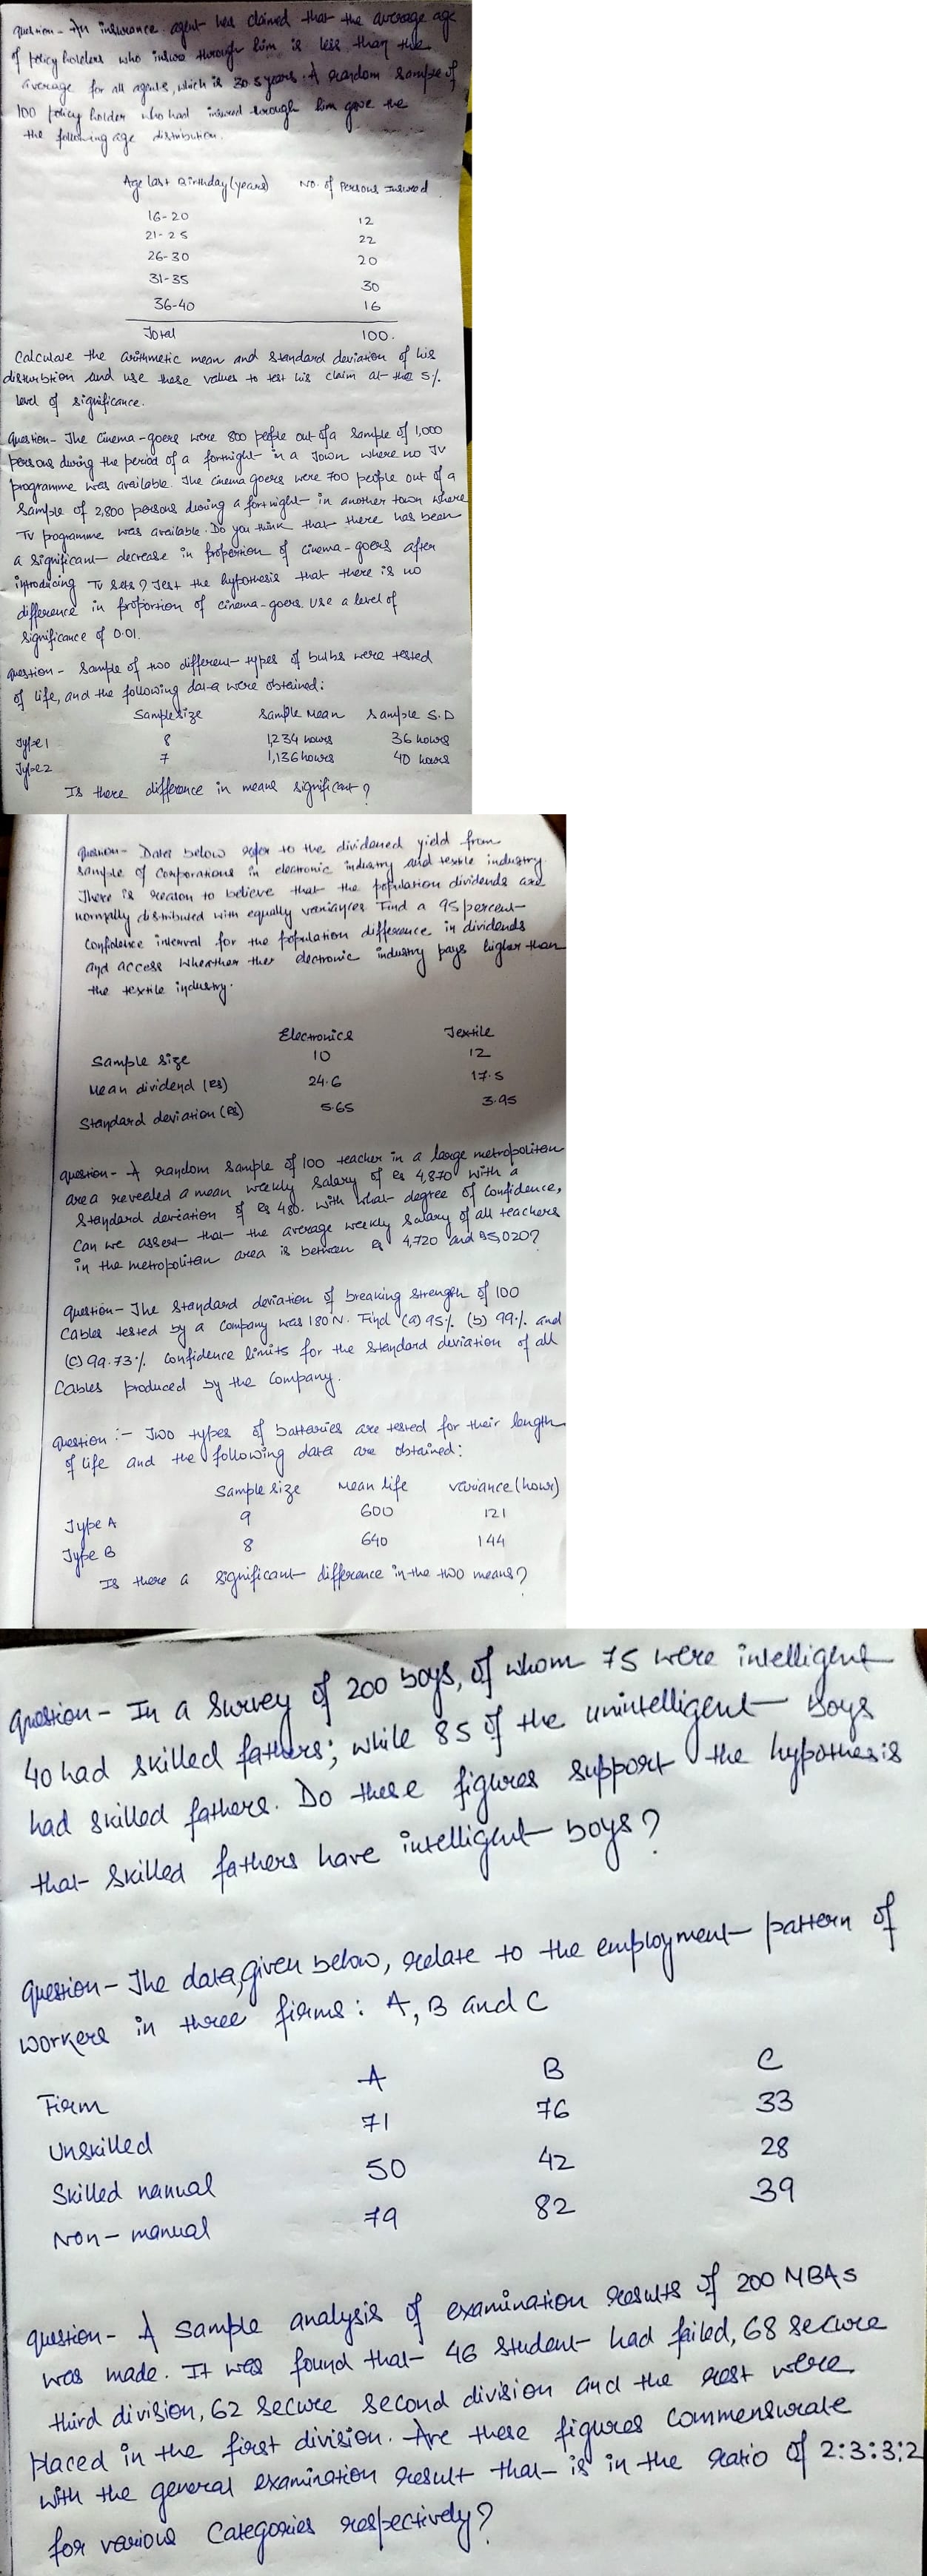 Question - An insurance agent has claimed that the average age
of policy holders who insure through him is less than the
average for all agents, which is 30.5 years. A random sample of
100 policy holder who had insured through him gave the
the following age distribution.
Age last Birthday (years) No. of Persons Insured
16-20 12
21-25 22
26-30 20
31-35 30
36-40 16
Total 100.
Calculate the arithmetic mean and standard deviation of his
disturbtion and use these values to test his claim at the 5%
level of significance.
Question - The Cinema-goers were 800 people out of a sample of 1,000
persons during the period of a fortnight in a Town where no TV
programme was available. The cinema goers were 700 people out of a
sample of 2,800 persons during a fortnight in another town where
TV pogramme was available. Do you think that there has been
a significant decrease in proportion of cinema-goers after
introducing TV sets? Test the hypothesis that there is no
difference in proportion of cinema-goers. Use a level of
significance of 0.01.
Question - Sample of two different types of bulbs were tested
of life, and the following data were obtained:
Sample size Sample Mean Sample S.D
Type 1 8 1,234 hours 36 hours
Type 2 7 1,136 hours 40 hours
Is there difference in means significant?
Question - Data below refer to the dividened yield from
sample of Corporations in electronic industry and textile industry.
There is reason to believe that the population dividends are
normally distributed with equally variances Find a 95 percent
Confidence interval for the population difference in dividends
and access Wheather ther electronic industry pays higher than
the textile industry.
Electronics Textile
Sample size 10 12
Mean dividend (Rs) 24.6 17.5
Standard deviation (Rs) 5.65 3.95
Question - A random sample of 100 teacher in a large metropolitan
area revealed a mean weekly salary of Rs 4,870 with a
Standard deviation of Rs 480. With what degree of Confidence,
Can we assert that the average weekly salary of all teachers
in the metropolitan area is between Rs 4,720 and Rs 5,020?
Question - The Standard deviation of breaking strength of 100
Cables tested by a Company was 180 N. Find (a) 95% (b) 99% and
(C) 99.73% Confidence limits for the standard deviation of all
Cables produced by the Company.
Question :- Two types of batteries are tested for their length
of life and the following data are obtained:
Sample size Mean life Variance (hour)
Type A 9 600 121
Type B 8 640 144
Is there a significant difference in the two means?
Question - In a Survey of 200 boys, of whom 75 were intelligent
40 had skilled fathers; while 85 of the unintelligent boys
had skilled fathers. Do these figures support the hypothesis
that skilled fathers have intelligent boys?
Question - The data, given below, relate to the employment pattern of
workers in three firms: A, B and C
Firm A B C
Unskilled 71 76 33
Skilled nanual 50 42 28
Non-manual 79 82 39
Question - A sample analysis of examination results of 200 MBAs
was made. It was found that 46 student had failed, 68 secure
third division, 62 secure second division and the rest were
placed in the first division. Are these figures Commensurate
with the general examination result that is in the ratio of 2:3:3:2
for various Categories respectively?